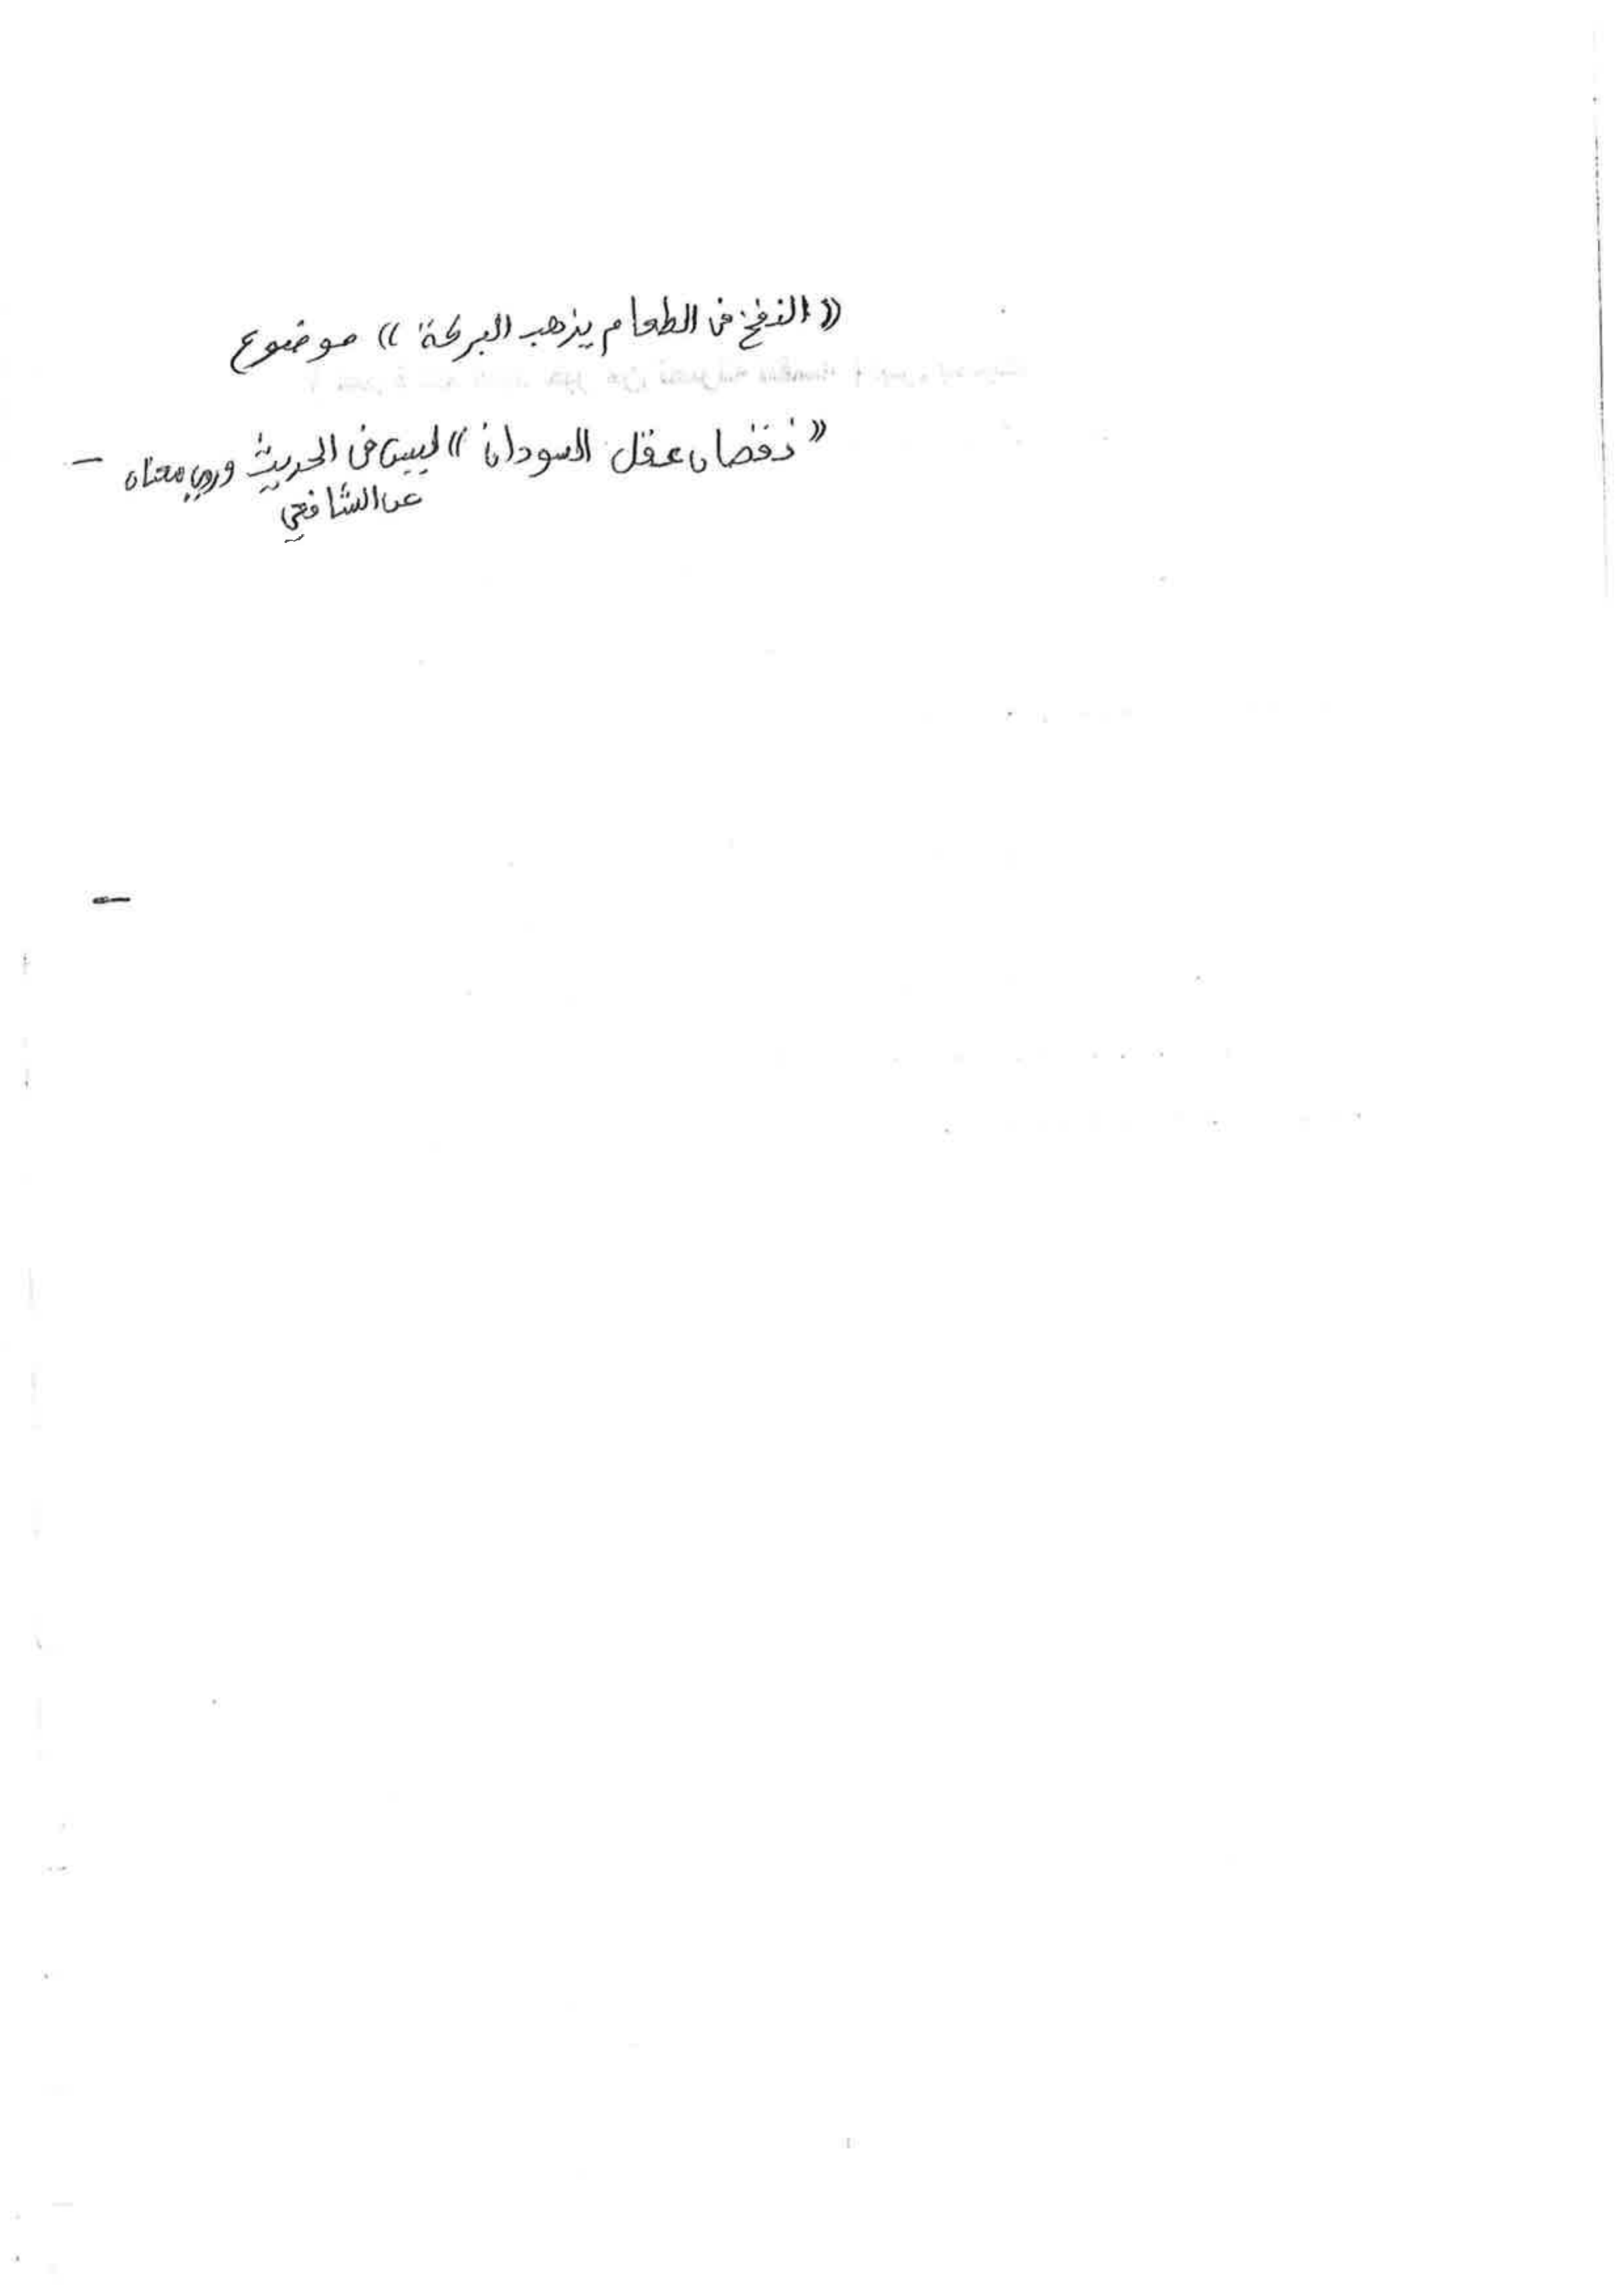 «النفخ في الطعام يذهب البركة» موضوع
«نقصان عقل السودان» ليس في الحديث وروي معناه –
عن الشافعي